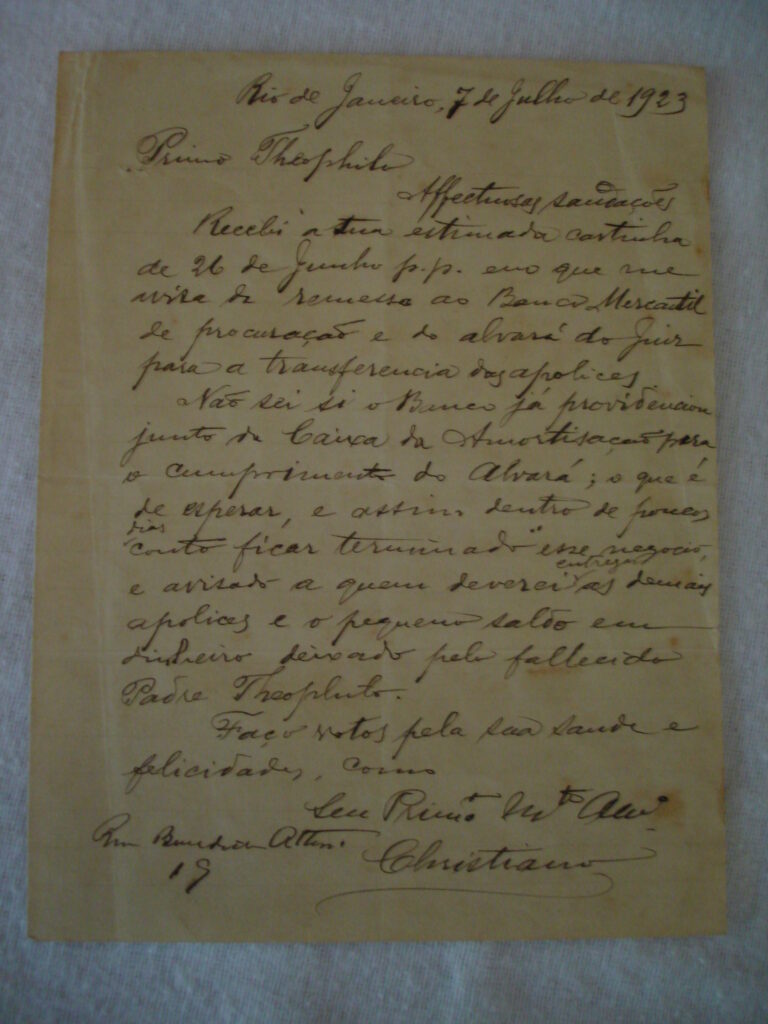 Rio de Janeiro, 7 de Julho de 1923
Primo Theophilo
Affectuosas saudações
Recebi a tua estimada cartinha
de 26 de Junho p.p. em que me
avisa da remessa ao Banco Mercantil
de procuração e do alvará do Juiz
para a transferencia das apolices
Não sei si o Banco já providenciou
junto da Caixa da Amortisação para
o cumprimento do Alvará; o que é
de esperar, e assim dentro de poucos
dias
conto ficar terminado esse negocio,
entregar
e avisado a quem deverei as demais
apolices e o pequeno saldo em
dinheiro deixado pelo fallecido
Padre Theophilo.
Faço votos pela sua saude e
felicidades, como
Seu Primo Mto Amo
Christiano
19